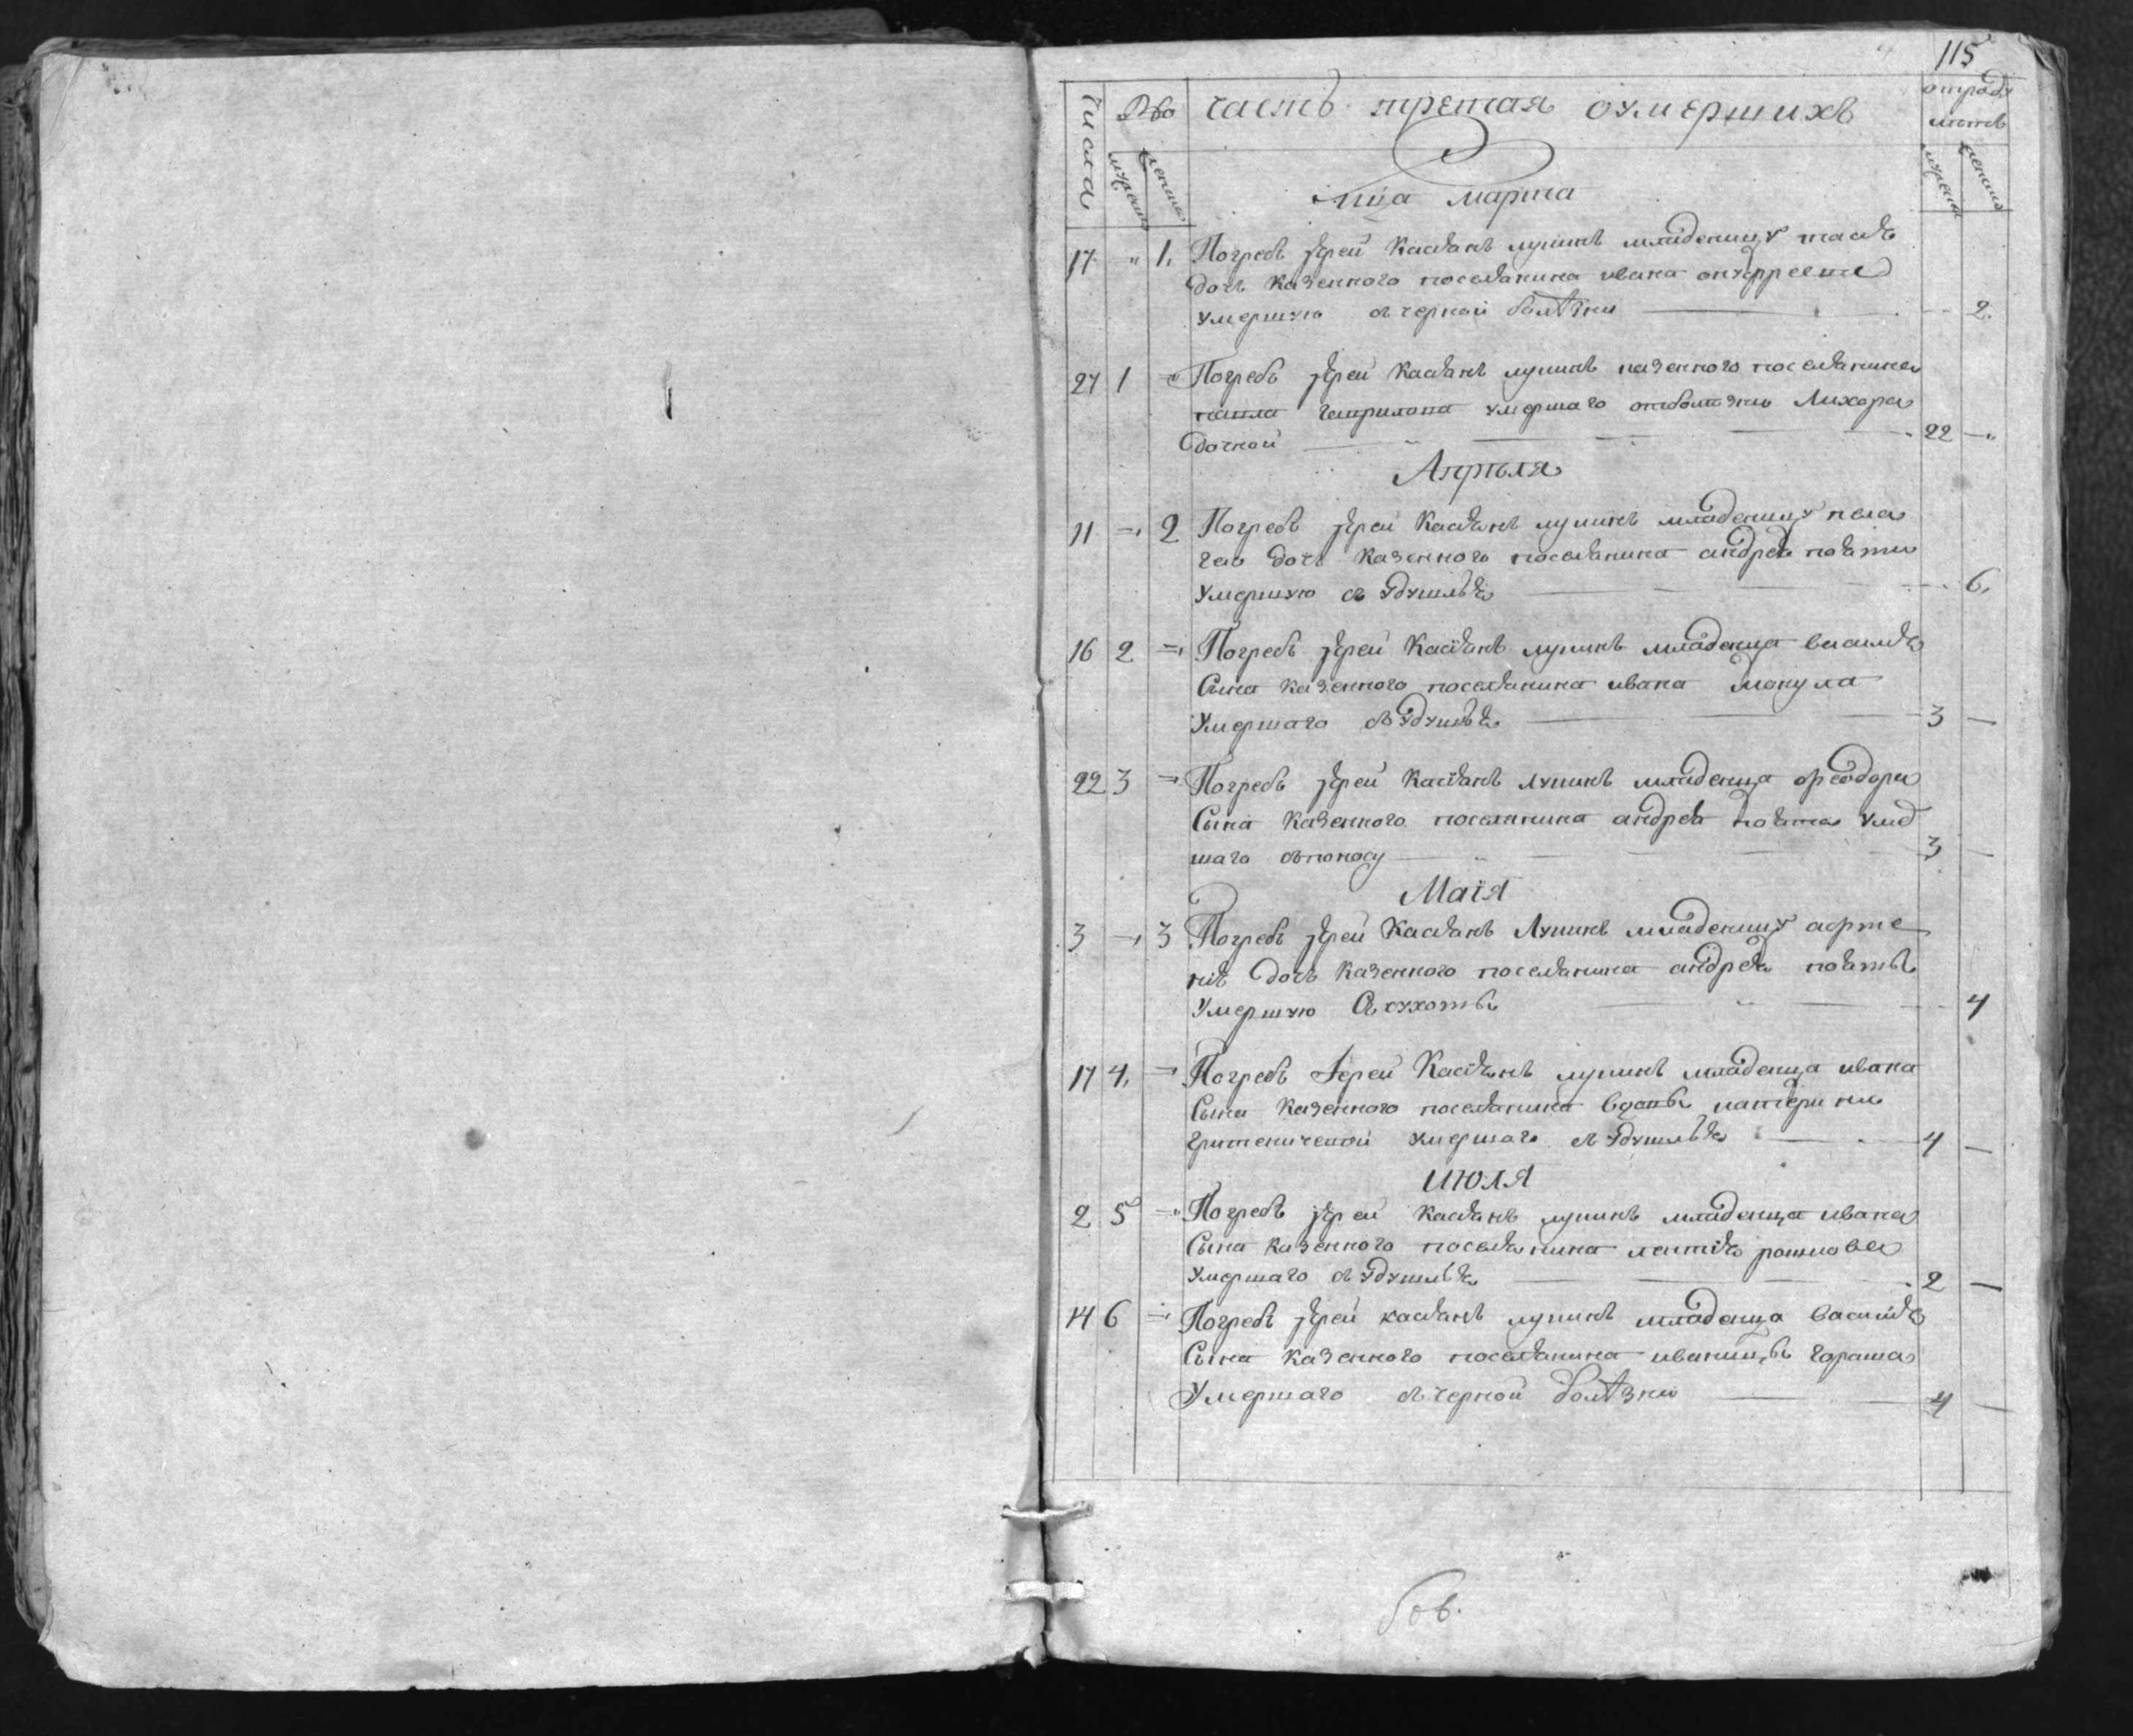 115
Числа
№
часть третая оумершихъ
мужеска
женска
мца марта
17 " 1. Погребъ Іерей Касіанъ лупинъ младеницу
дочь казенного поселанина ивана
умершую съ черной болѣзни 2.
27 1 Погребъ Іерей Касіанъ лупинъ казенного поселанина
умершаго отъболѣзни Лихора
дочной 22
Апрѣля
11 2 Погребъ Іерей Касіанъ лупинъ младеницу пела
гею дочь казенного поселанина андрея
умершую съ удушья 6.
16 2 Погребъ Іерей Касіанъ лупинъ младенца василія
Сына казенного поселанина ивана
Умершаго съ удушья 3
22 3 Погребъ Іерей Касіанъ лупинъ младенца ѳеодора
Сына казенного поселанина андрея умер
шаго съпоносу 3
Маія
3 3 Погребъ Іерей Касіанъ Лупинъ младеницу
дочь казенного поселанина андрея
Умершую 4
17 4. Погребъ Іерей Касіанъ лупинъ младенца ивана
Сына казенного поселанина вдовы катерини
умершаго съ удушья 4
Июля
2 5 Погребъ Іерей Касіанъ лупинъ младенца ивана
Сына казенного поселанина
Умершаго съ удушья 2
14 6 Погребъ Іерей касіанъ лупинъ младенца василія
Сына казенного поселанина
Умершаго съ черной болѣзни 4